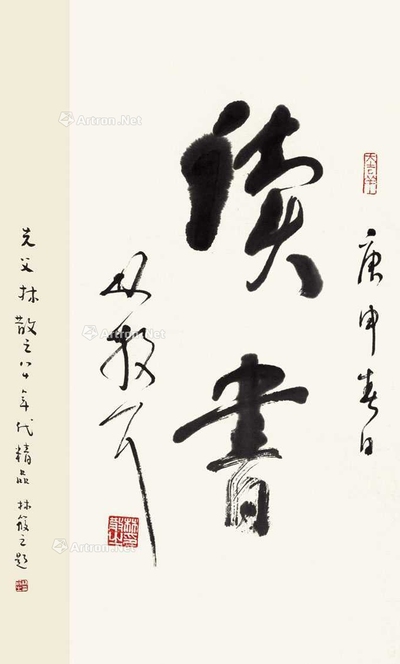 庚申春日
讀書
林散耳
先父林散之八十年代精品 林筱之題
Artron.Net
Artron.Net
Artron.Net
Artron.Net